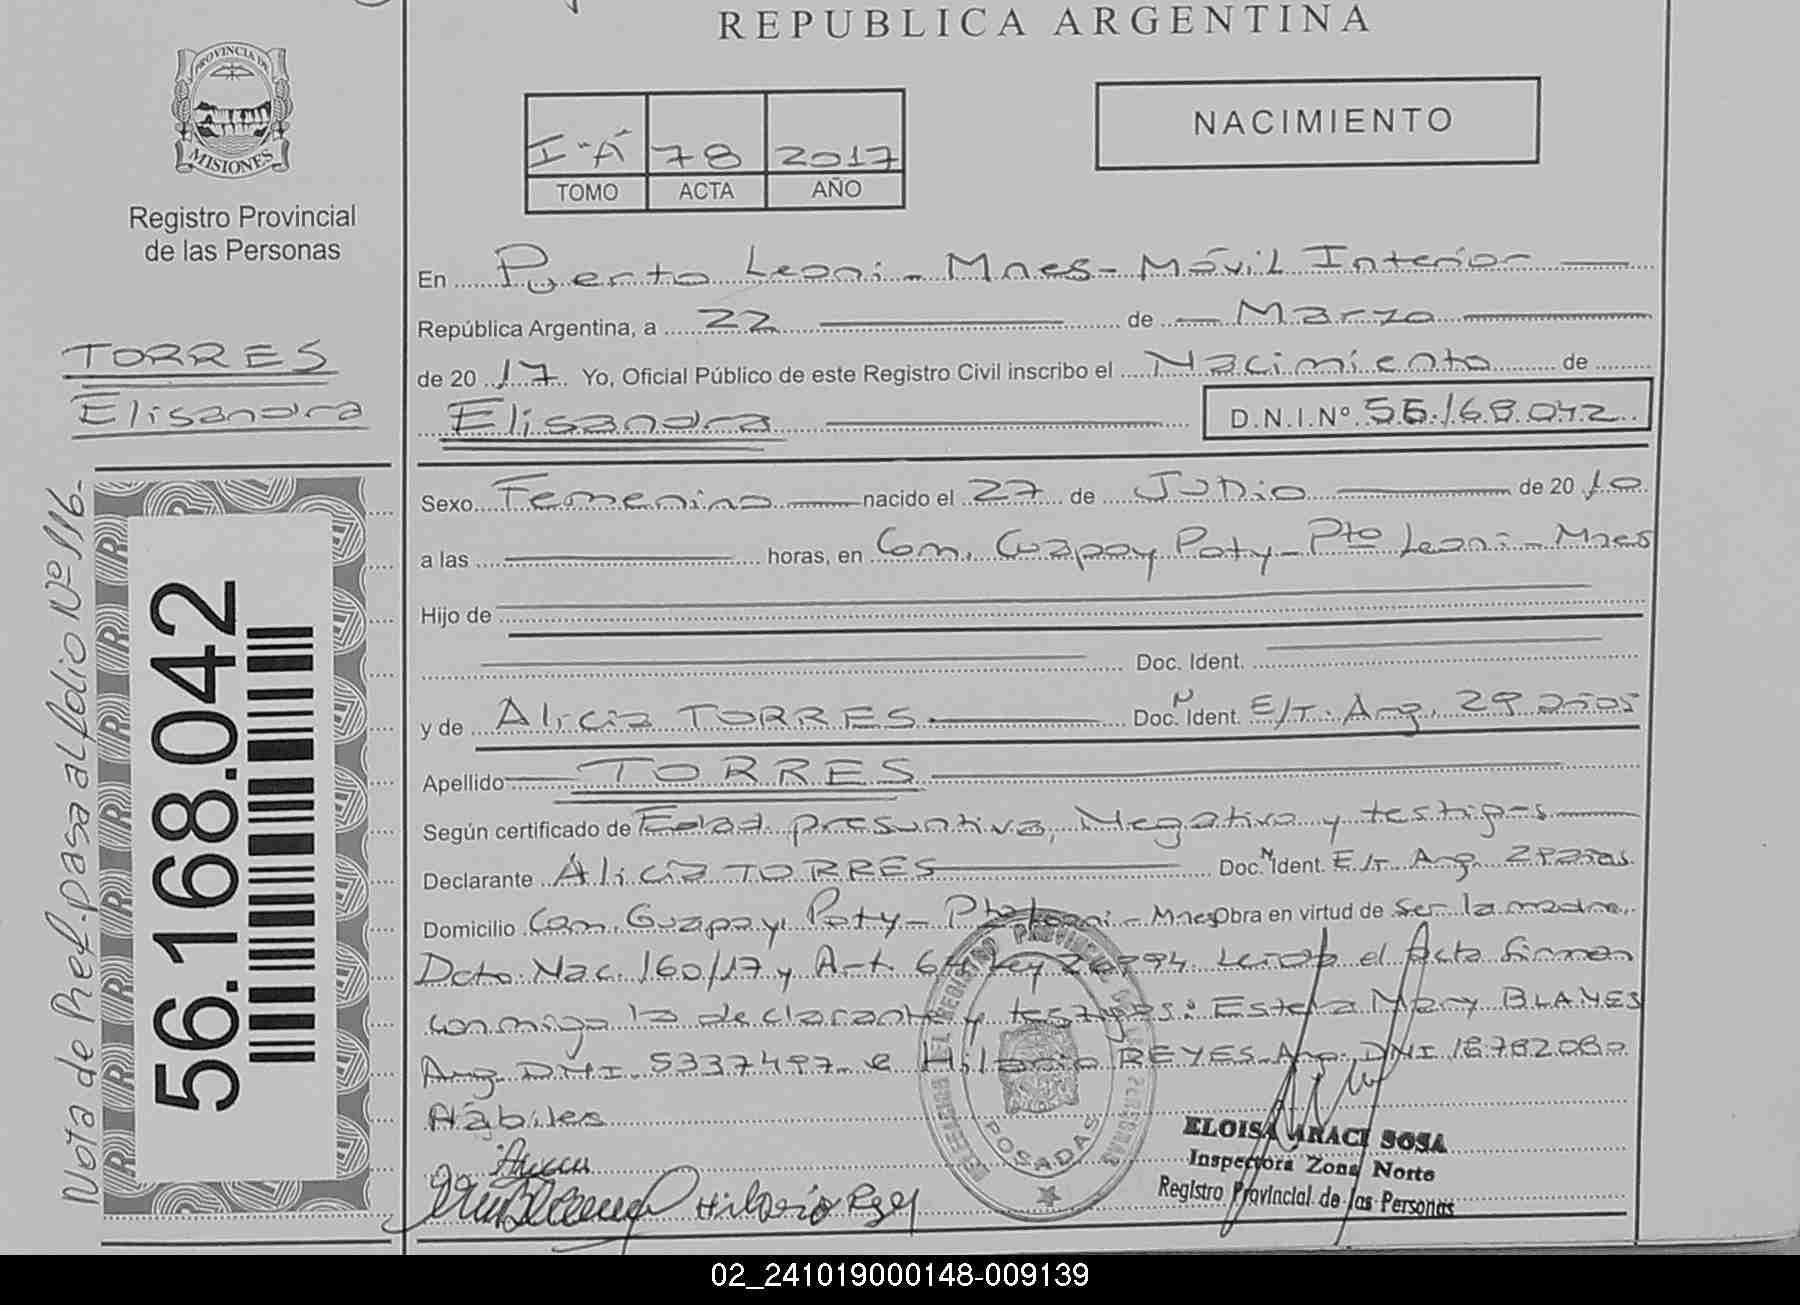 REPUBLICA ARGENTINA
PROVINCIA DE MISIONES
Registro Provincial
de las Personas
I-A 78 2017
TOMO ACTA AÑO
NACIMIENTO
TORRES
Elisandra
Nota de Pref. pasa al folio Nº 116.-
56.168.042
En Puerto Leoni - Mnes - Móvil Interior
República Argentina, a 22 de Marzo
de 20 17 Yo, Oficial Público de este Registro Civil inscribo el Nacimiento de
Elisandra D.N.I.Nº 56.168.042
Sexo Femenino nacido el 27 de Junio de 20 10
a las horas, en Com. Guapoy Poty - Pto Leoni - Mnes
Hijo de
Doc. Ident.
y de Alicia TORRES Doc. N Ident. E/T. Arg. 29 años
Apellido TORRES
Según certificado de Edad presuntiva, Negativo y testigos
Declarante Alicia TORRES Doc. N Ident. E/T. Arg. 29 años
Domicilio Com. Guapoy Poty - Pto Leoni - Mnes Obra en virtud de ser la madre.
Dcto. Nac. 160/17 y Art. 64 Ley 26994. Leída el Acta firman
conmigo la declarante y testigos: Estela Mary BLANES
Arg. DNI 5337497 e Hilario REYES Arg. DNI 18.782080
Hábiles
Hilario Rey
POSADAS
ELOISA ARACI SOSA
Inspectora Zona Norte
Registro Provincial de las Personas
02_241019000148-009139